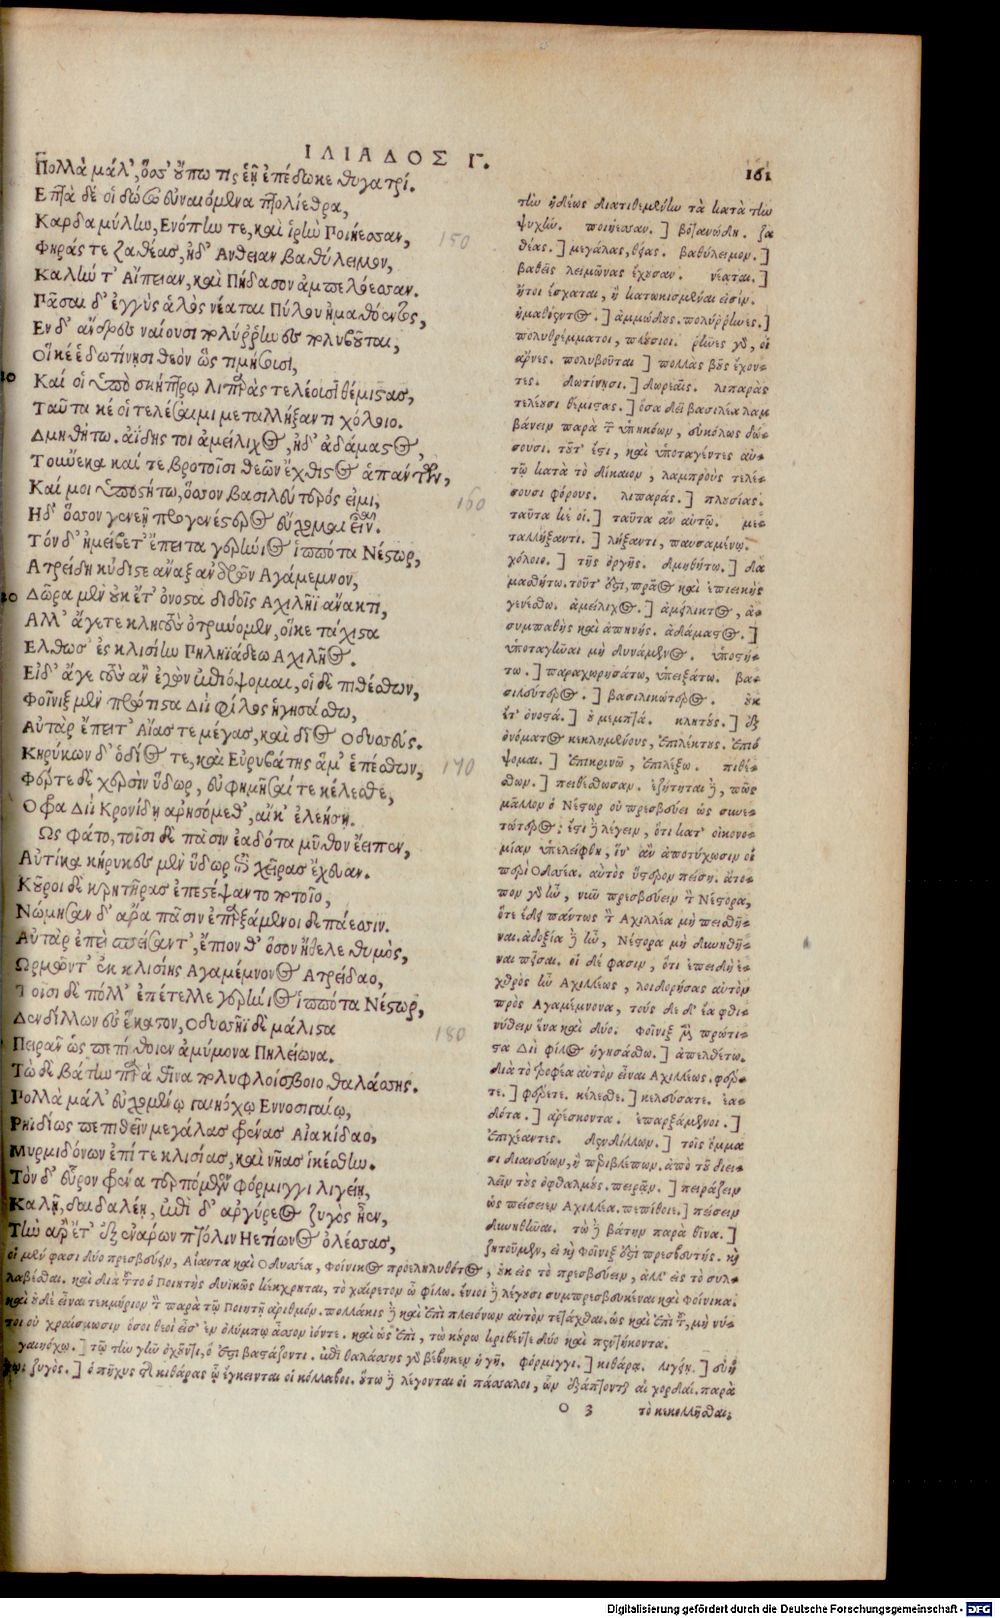 ΙΛΙΑΔΟΣ Γ.
161
Πολλὰ μάλ', ὅσσ' οὔπω τις ἑῇ ἐπέδωκε θυγατρί.
Επτὰ δέ οἱ δώσω εὐναιόμενα πτολίεθρα,
Καρδαμύλην, Ενόπην τε, καὶ ἱρὴν Ποιήεσσαν,
150
Φηράς τε ζαθέας, ἠδ' Ανθειαν βαθύλειμον,
Καλήν τ' Αἴπειαν, καὶ Πήδασον ἀμπελόεσσαν.
Πᾶσαι δ' ἐγγὺς ἁλὸς νέαται Πύλου ἠμαθόεντος,
Εν δ' ἄνδρες ναίουσι πολύῤῥηνες πολυβοῦται,
Οἵ κέ ἑ δωτίνῃσι θεὸν ὣς τιμήσουσι,
10
Καί οἱ ὑπὸ σκήπτρῳ λιπαρὰς τελέουσι θέμιστας,
Ταῦτα κέ οἱ τελέσαιμι μεταλλήξαντι χόλοιο.
Δμηθήτω. ἀΐδης τοι ἀμείλιχος, ἠδ' ἀδάμαστος,
Τοὔνεκα καί τε βροτοῖσι θεῶν ἔχθιστος ἁπάντων,
Καί μοι ὑποστήτω, ὅσσον βασιλεύτερός εἰμι,
160
Ηδ' ὅσσον γενεῇ προγενέστερος εὔχομαι εἶναι.
Τὸν δ' ἠμείβετ' ἔπειτα γερήνιος ἱππότα Νέστωρ,
Ατρείδη κύδιστε ἄναξ ἀνδρῶν Αγάμεμνον,
20
Δῶρα μὲν οὐκ ἔτ' ὀνοστὰ διδοῖς Αχιλῆϊ ἄνακτι,
Αλλ' ἄγετε κλητοὺς ὀτρύνομεν, οἵκε τάχιστα
Ελθωσ' ἐς κλισίην Πηληϊάδεω Αχιλῆος.
Εἰδ' ἄγε τοὺς ἂν ἐγὼν ἐπιόψομαι, οἱ δὲ πιθέσθων,
Φοῖνιξ μὲν πρώτιστα Διῒ φίλος ἡγησάσθω,
Αὐτὰρ ἔπειτ' Αἴας τε μέγας, καὶ δῖος Οδυσσεύς.
Κηρύκων δ' ὁδίος τε, καὶ Εὐρυβάτης ἅμ' ἑπέσθων,
170
Φέρτε δὲ χερσὶν ὕδωρ, εὐφημῆσαί τε κέλεσθε,
Οφρα Διῒ Κρονίδῃ ἀρησόμεθ', αἴκ' ἐλεήσῃ.
Ως φάτο, τοῖσι δὲ πᾶσιν ἑαδότα μῦθον ἔειπεν,
Αὐτίκα κήρυκες μὲν ὕδωρ ἐπὶ χεῖρας ἔχευαν.
Κοῦροι δὲ κρητῆρας ἐπεστέψαντο ποτοῖο,
Νώμησαν δ' ἄρα πᾶσιν ἐπαρξάμενοι δεπάεσσιν.
Αὐτὰρ ἐπεὶ σπεῖσαντ', ἔπιον θ' ὅσον ἤθελε θυμὸς,
Ωρμῶντ' ἐκ κλισίης Αγαμέμνονος Ατρείδαο,
Τοῖσι δὲ πόλλ' ἐπέτελλε γερήνιος ἱππότα Νέστωρ,
Δενδίλλων ἐς ἕκαστον, Οδυσσῆϊ δὲ μάλιστα
180
Πειρᾶν ὡς πεπίθοιεν ἀμύμονα Πηλείωνα.
Τὼ δὲ βάτην παρὰ θῖνα πολυφλοίσβοιο θαλάσσης.
Πολλὰ μάλ' εὐχομένω γαιηόχῳ Εννοσιγαίῳ,
Ρηϊδίως πεπιθεῖν μεγάλας φρένας Αἰακίδαο,
Μυρμιδόνων ἐπί τε κλισίας, καὶ νῆας ἱκέσθην.
Τὸν δ' εὗρον φρένα τερπόμενον φόρμιγγι λιγείῃ,
Καλῇ, δαιδαλέῃ, ἐπὶ δ' ἀργύρεος ζυγὸς ἦεν,
Τὴν ἄρετ' ἐξ ἐνάρων πτόλιν Ηετίωνος ὀλέσσας,
τὴν ἡδέως διατιθεμένην τὰ κατὰ τὴν
ψυχήν. ποιήεσσαν.] βοτανώδη. ζα
θέας.] μεγάλας, θείας. βαθύλειμον.]
βαθεῖς λειμῶνας ἔχουσαν. νέαται.]
ἤτοι ἔσχαται, ἢ κατωκισμέναι εἰσίν.
ἠμαθόεντος.] ἀμμώδους. πολύῤῥηνες.]
πολυθρέμματοι, πλούσιοι. ῥῆνες γὰρ, οἱ
ἄρνες. πολυβοῦται] πολλὰς βοῦς ἔχον-
τες. δωτίνησι.] δωρεαῖς. λιπαρὰς
τελέουσι θέμιστας.] ὅσα δεῖ βασιλέα λαμ
βάνειν παρὰ τῶν ὑπηκόων, εὐκόλως δώ-
σουσι. τοῦτ' ἔστι, καὶ ὑποταγέντες αὐ-
τῷ κατὰ τὸ δίκαιον, λαμπροὺς τελέ-
σουσι φόρους. λιπαράς.] πλουσίας.
ταῦτα κέ οἱ.] ταῦτα ἂν αὐτῷ. με-
ταλλήξαντι.] λήξαντι, παυσαμένῳ.
χόλοιο.] τῆς ὀργῆς. δμηθήτω.] δα
μασθήτω. τοῦτ' ἔστι, πρᾶος καὶ ἐπιεικὴς
γενέσθω. ἀμείλιχος.] ἀμείλικτος, ἀ-
συμπαθὴς καὶ ἀπηνής. ἀδάμαστος.]
ὑποταγῆναι μὴ δυνάμενος. ὑποστή-
τω.] παραχωρησάτω, ὑπειξάτω. βα-
σιλεύτερος.] βασιλικώτερος. οὐκ
ἔτ' ὀνοστά.] οὐ μεμπτά. κλητούς.] ἐξ
ὀνόματος κεκλημένους, ἐπιλέκτους. ἐπιό
ψομαι.] ἐπικρινῶ, ἐπιλέξω. πιθέ-
σθων.] πειθέσθωσαν. ἐζήτηται δὲ, πῶς
μᾶλλον ὁ Νέστωρ οὐ πρεσβεύει ὡς συνε-
τώτερος; ἔστι δὲ λέγειν, ὅτι κατ' οἰκονο-
μίαν ὑπελείφθη, ἵν' ἂν ἀποτύχωσιν οἱ
περὶ Οδυσσέα. αὐτὸς ὕστερον πείσῃ. ἄτο-
πον γὰρ ἦν, νῦν πρεσβεύειν τὸν Νέστορα,
ὅτε ἔδει πάντως τὸν Αχιλλέα μὴ πεισθῆ-
ναι. ἀδοξία δὲ ἦν, Νέστορα μὴ δυνηθῆ-
ναι πεῖσαι. οἱ δέ φασιν, ὅτι ἐπειδὴ ἐ-
χθρὸς ἦν Αχιλλέως, λοιδορήσας αὐτὸν
πρὸς Αγαμέμνονα,
Διῒ φίλος ἡγησάσθω.] ἀπελθέτω.
διὰ τὸ τροφέα αὐτὸν εἶναι Αχιλλέως. φέρ-
τε.] φέρετε. κέλεσθε.] κελεύσατε. ἑα-
δότα.] ἀρέσκοντα. ἐπαρξάμενοι.]
ἐπιχέαντες. δενδίλλων.] τοῖς ὄμμα
σι διανεύων, ἢ περιβλέπων. ἀπὸ τοῦ διει-
λεῖν τοὺς ὀφθαλμούς. πειρᾶν.] πειράζειν
ὡς πείσειεν Αχιλλέα. πεπίθοιεν.] πείσειν
δυνηθεῖεν. τὼ δὲ βάτην παρὰ θῖνα.]
ζητοῦμεν, εἰ καὶ Φοῖνιξ ἔστι πρεσβευτής. καὶ
οἱ μέν φασι δύο πρεσβεύειν, Αἴαντα καὶ Οδυσσέα, Φοίνικος προεληλυθότος, οὐκ εἰς τὸ πρεσβεύειν, ἀλλ' εἰς τὸ συλ-
λαβέσθαι. καὶ διὰ τοῦτο ὁ ποιητὴς δυϊκῶς κέχρηται, τὸ χαίρετον ὦ φίλω. ἔνιοι δὲ λέγουσι συμπρεσβευκέναι καὶ Φοίνικα.
καὶ οὐδὲ εἶναι τεκμήριον τὸν παρὰ τῷ ποιητῇ ἀριθμόν. πολλάκις δὲ καὶ ἐπὶ πλειόνων αὐτὸν τετάχθαι. ὡς καὶ ἐπὶ τοῦ, μὴ νύ-
τοι οὐ χραίσμωσιν ὅσοι θεοί εἰσ' ἐν ὀλύμπῳ ἆσσον ἰόντε. καὶ ὡς ἐπὶ, τὼ κούρω κρινθέντε δύο καὶ πεντήκοντα.
γαιηόχῳ.] τῷ τὴν γῆν ὀχοῦντι, ὅ ἐστι βαστάζοντι. ἐπὶ θαλάσσης γὰρ βέβηκεν ἡ γῆ. φόρμιγγι.] κιθάρᾳ. λιγείῃ.] εὐή
χῳ. ζυγὸς.] ὁ πῆχυς τῆς κιθάρας ᾧ ἔγκεινται οἱ κόλλαβοι. οὕτω δὲ λέγονται οἱ πάσσαλοι, ὧν ἐξάπτονται αἱ χορδαί. παρὰ
Ο 3
τὸ κεκολλῆσθαι;
Digitalisierung gefördert durch die Deutsche Forschungsgemeinschaft - DFG